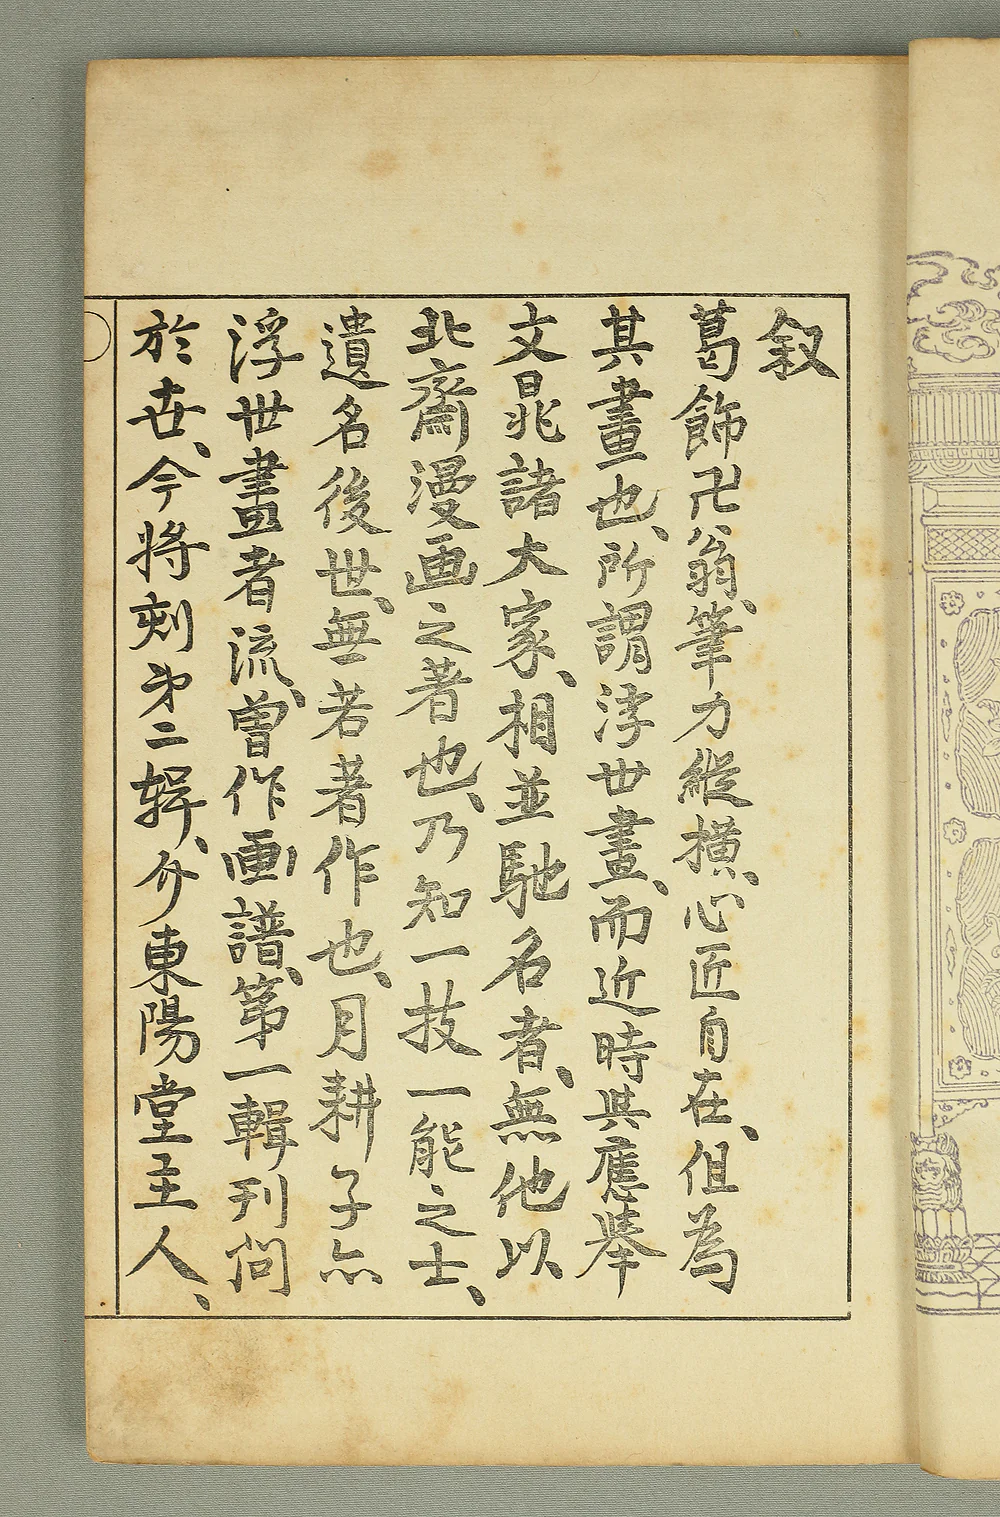 叙
葛飾卍翁、筆力縦横、心匠自在、但為
其畫也、所謂浮世畫、而近時與應擧
文晁諸大家、相並馳名者、無他以
北齋漫画之著也、乃知一技一能之士、
遺名後世、無若著作也、月耕子亦
浮世畫者流、曽作画譜、第一輯刊問
於世、今将刻第二輯、介東陽堂主人、